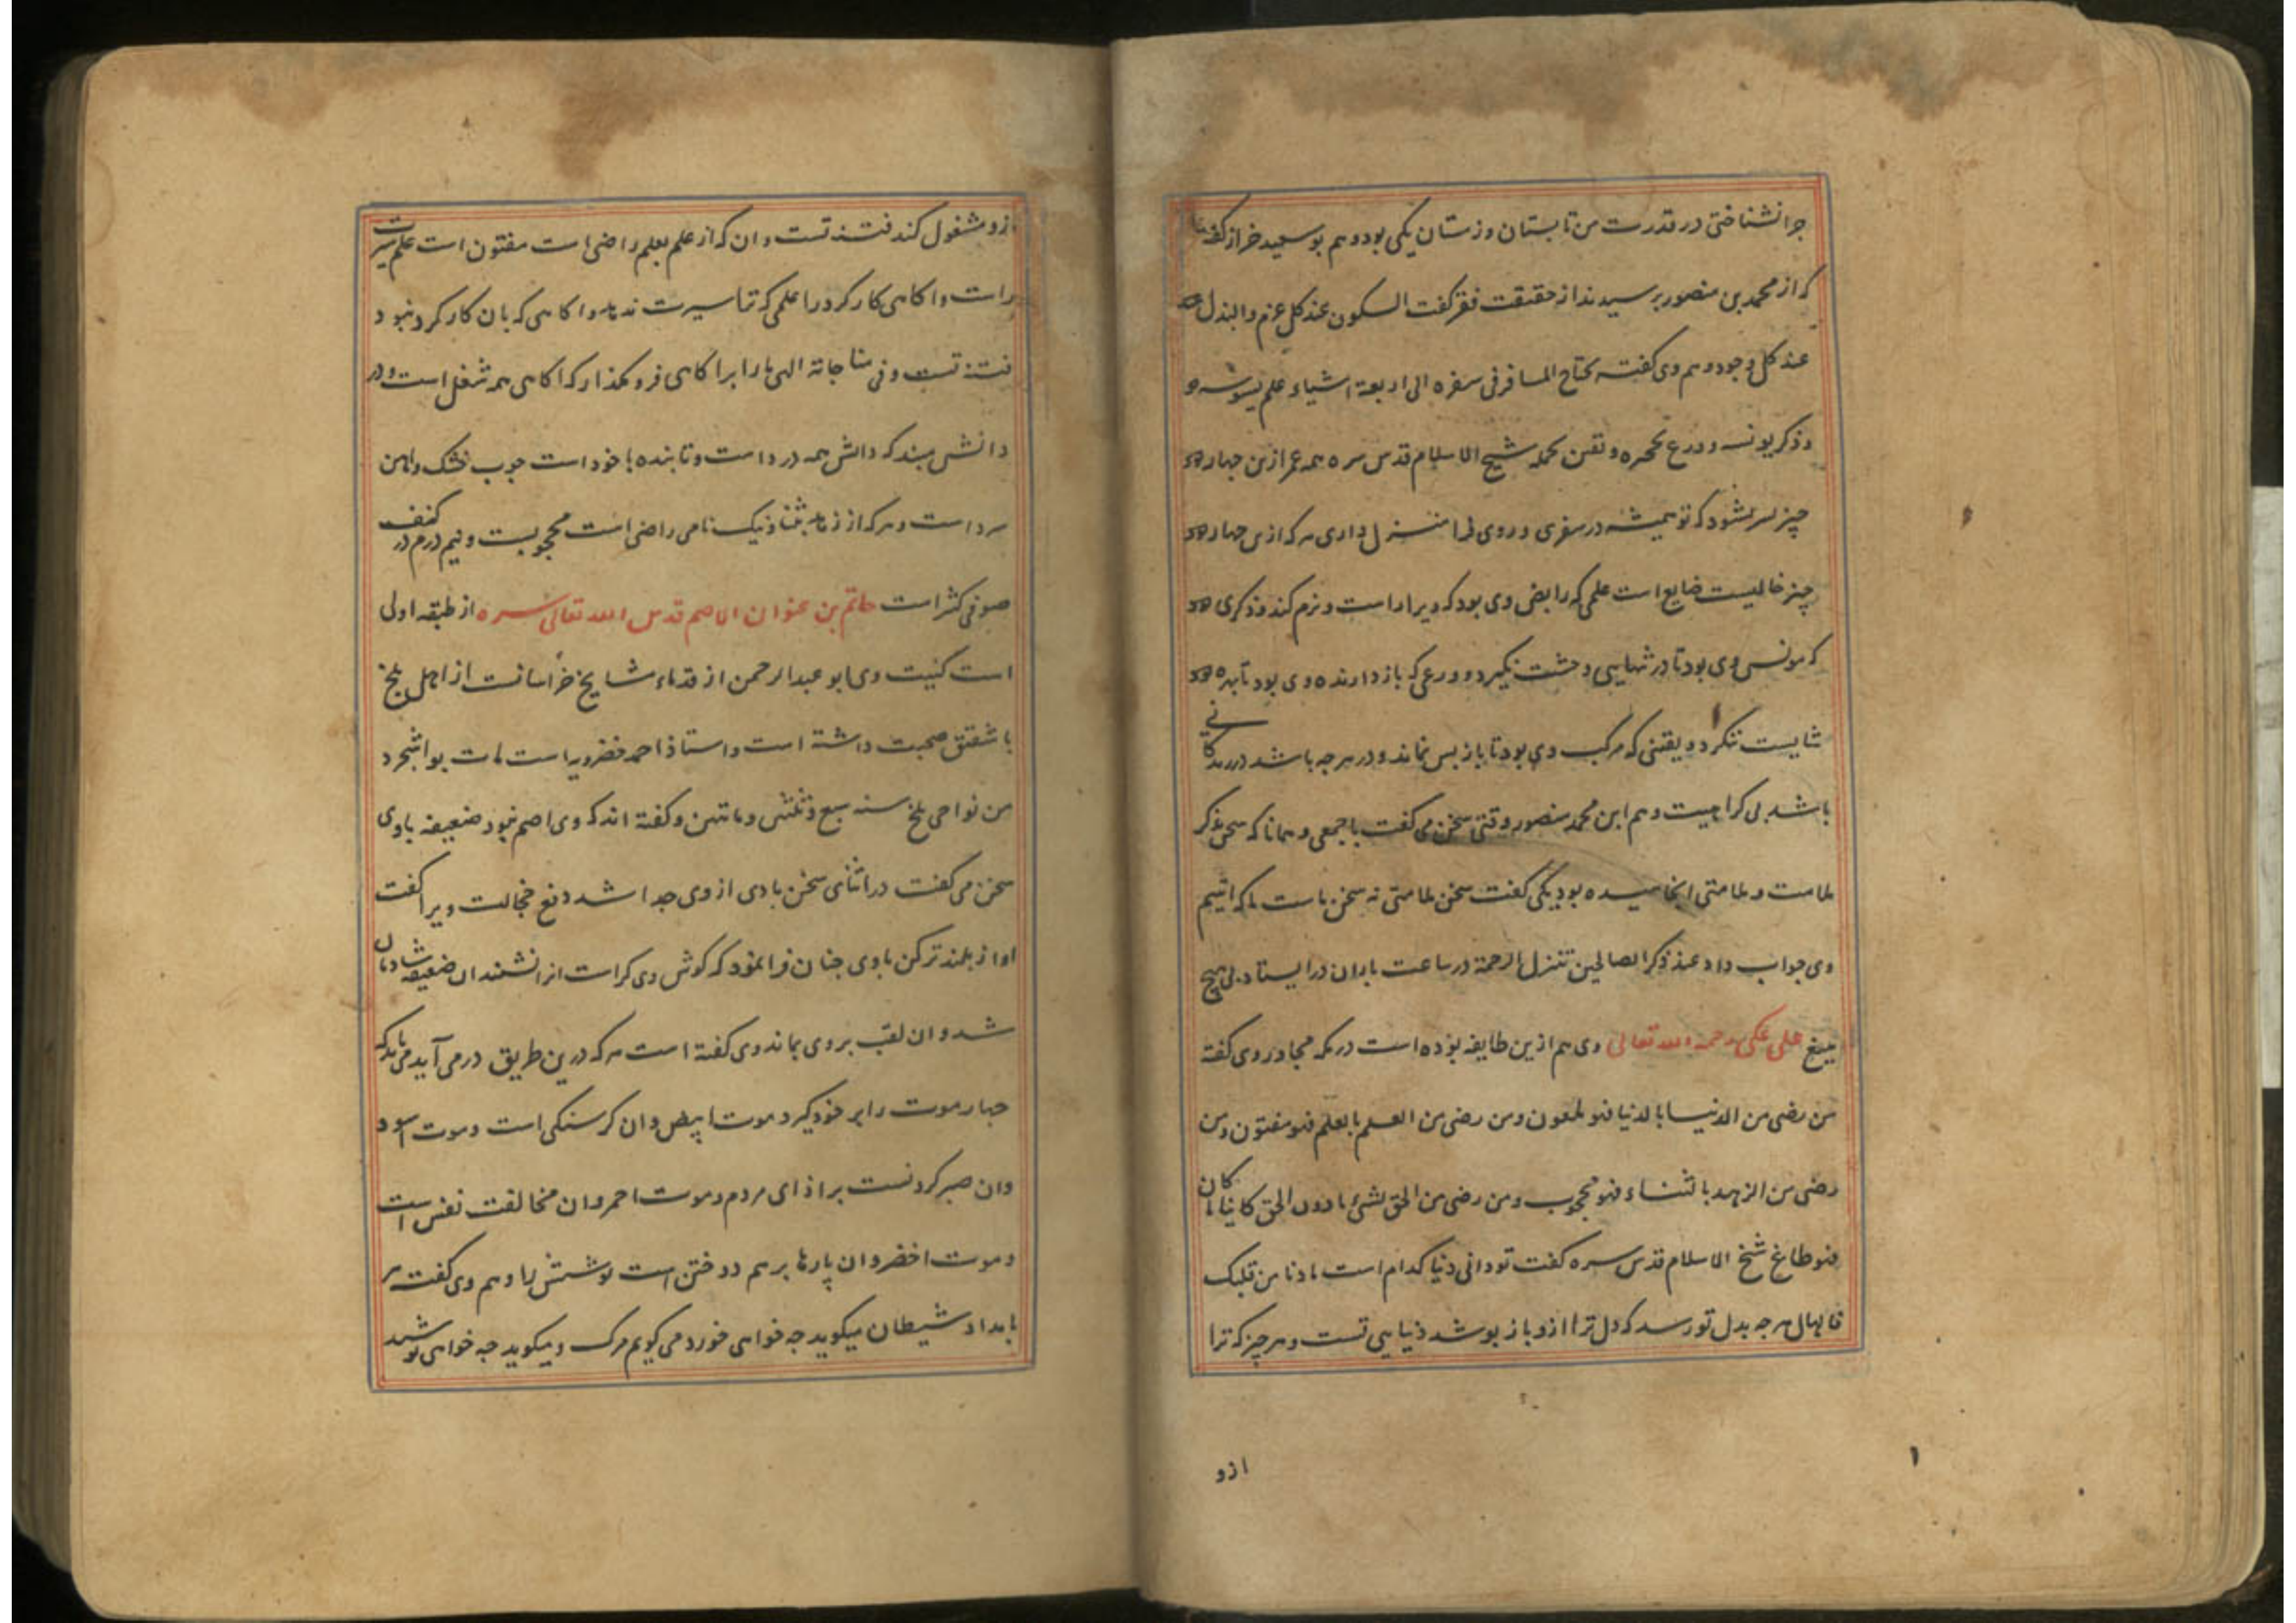 چرا نشناختی در قدرت من تابستان و زمستان یکی بود و هم بو سعید خراز گفته
که از محمد بن منصور پرسیدند از حقیقت فقر گفت السکون عند کل عزم والبذل
عند کل وجود و هم وی گفته یحتاج المسافر فی سفره الی اربعة اشیاء علم یسوسه
و ذکر یونسه و ورع یحجزه و یقین یحمله شیخ الاسلام قدس سره همه عمر ازین چهار
چیز بسر نشود که تو همیشه در سفری و روی فرا منزل داری هر که ازین چهار
چیز خالیست ضایع است علمی که رایض وی بود که ویرا راست و نرم کند و ذکری
که مونس وی بود تا در تنهایی وحشت نگیرد و ورعی که باز دارنده وی بود تا
شایست ننگرد و یقینی که مرکب وی بود تا باز پس نماند و در هر چه باشد در
باشد بی کراهیت و هم این محمد منصور وقتی سخن می گفت با جمعی و همانا که سخن بذکر
ملامت و ملامتی انجامیده بود یکی گفت سخن ملامتی نه سخن ماست ما که اتیم
وی جواب داد عند ذکر الصالحین تنزل الرحمة در ساعت باران در ایستاد بی هیچ
میغ علی عکی رحمه الله تعالی وی هم ازین طایفه بوده است در مکه مجاور وی گفته
من رضی من الدنیا بالدنیا فهو ملعون و من رضی من العلم بالعلم فهو مفتون و من
رضی من الزهد بالثناء فهو محجوب و من رضی من الحق لشیء ما دون الحق کاینا ما کان
فهو طاغ شیخ الاسلام قدس سره گفت تو دانی دنیا کدام است ما دنا من قلبک
فا بهال هر چه بدل تو رسد که دل ترا ازو باز پوشد دنیایی تست و هر چیز که ترا
ازو
ازو مشغول کند فتنه تست و ان که از علم بعلم راضی است مفتون است علم سیرت
راست و اکاهی کار کرد را علمی که ترا سیرت ندهد و اکاهی که بان کار کرد نبود
فتنه تست و فی مناجاته الهی ما را بر اکاهی فرو مگذار که اکاهی همه شغل است و در
دانش مبند که دانش همه درد است و تا بنده با خود است چوب خشک و اهن
سرد است و هر که از زهد بثنا و نیک نامی راضی است محجوبست و نیم درم در کنف
صوفی کثر است حاتم بن عنوان الاصم قدس الله تعالی سره از طبقه اولی
است کنیت وی ابو عبدالرحمن از قدماء مشایخ خراسانست از اهل بلخ
با شقیق صحبت داشته است و استاذ احمد خضرویه است مات بواشجرد
من نواحی بلخ سنه سبع و ثلثین و ماتین و گفته اند که وی اصم نبود ضعیفه با وی
سخن می گفت در اثنای سخن بادی از وی جدا شد دفع خجالت ویرا گفت
اواز بلند تر کن با وی چنان فرا نمود که گوش وی کراست انرا نشنید ان ضعیفه شادمان
شد و ان لقب بر وی بماند وی گفته است هر که درین طریق در می آید می باید که
چهار موت را بر خود گیرد موت ابیض و ان گرسنگی است و موت اسود
وان صبر کردنست بر اذای مردم و موت احمر و ان مخالفت نفس است
و موت اخضر و ان پارها بر هم دوختن است پوشش را و هم وی گفت هر
بامداد شیطان میگوید چه خواهی خورد می گویم مرگ و میگوید چه خواهی پوشید